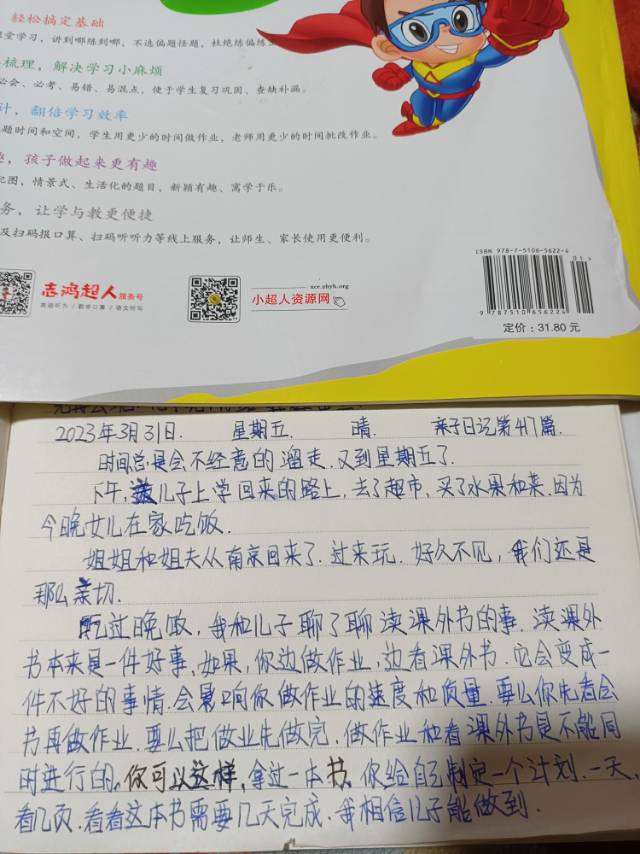 轻松搞定基础
堂学习，讲到哪练到哪，不选偏题怪题，杜绝练偏练
梳理，解决学习小麻烦
必会、必考、易错、易混点，便于学生复习巩固、查缺补漏。
计，翻倍学习效率
题时间和空间，学生用更少的时间做作业，老师用更少的时间批改作业。
，孩子做起来更有趣
配图，情景式、生活化的题目，新颖有趣、寓学于乐。
务，让学与教更便捷
及扫码报口算、扫码听听力等线上服务，让师生、家长使用更便利。
志鸿超人服务号
英语听力 / 数学口算 / 语文听写
xcr.zhyh.org
小超人资源网
ISBN 978-7-5106-5622-4
01>
9 787510 656224
定价：31.80 元
2023年3月31日. 星期五. 晴. 亲子日记第417篇.
时间总是会不经意的溜走.又到星期五了.
下午,接儿子上学回来的路上,去了超市,买了水果和菜.因为
今晚女儿在家吃饭.
姐姐和姐夫从南京回来了.过来玩.好久不见,我们还是
那么亲切.
吃过晚饭,我和儿子聊了聊读课外书的事.读课外
书本来是一件好事,如果,你边做作业,边看课外书.它会变成一
件不好的事情.会影响你做作业的速度和质量.要么你先看会
书再做作业.要么把做业先做完.做作业和看课外书是不能同
时进行的.你可以这样,拿过一本书,你给自己制定一个计划.一天、
看几页.看看这本书需要几天完成.我相信儿子能做到.